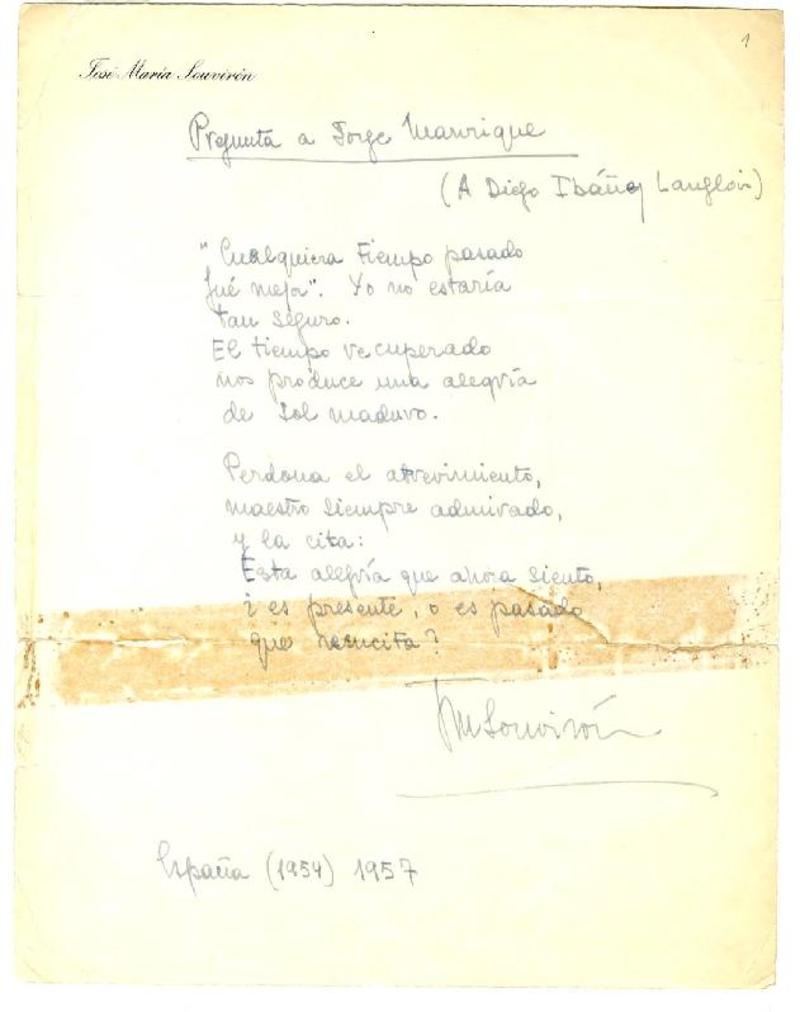 1
José María Souvirón
Pregunta a Jorge Manrique
(A Diego Ibáñez Langlois)
"Cualquiera tiempo pasado
fué mejor". Yo no estaría
tan seguro.
El tiempo recuperado
nos produce una alegría
de sol maduro.
Perdona el atrevimiento,
maestro siempre admirado,
y la cita:
Esta alegría que ahora siento,
¿es presente, o es pasado
que resucita?
JMSouvirón
España (1954) 1957